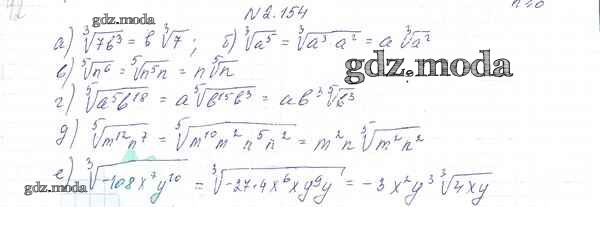 gdz.moda
№2.154
а) ∛(7b³) = b ∛7; б) ∛(a⁵) = ∛(a³·a²) = a ∛(a²)
в) ⁵√(n⁶) = ⁵√(n⁵n) = n ⁵√n
gdz.moda
г) ⁵√(a⁵b¹⁸) = a ⁵√(b¹⁵b³) = ab³ ⁵√(b³)
д) ⁵√(m¹²n⁷) = ⁵√(m¹⁰m²n⁵n²) = m²n ⁵√(m²n²)
е) ∛(-108x⁷y¹⁰) = ∛(-27·4x⁶xy⁹y) = -3x²y³ ∛(4xy)
gdz.moda